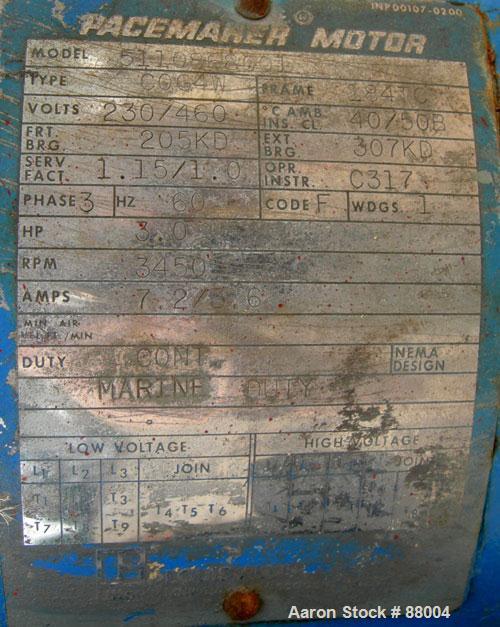 INP00107-0200
PACEMAKER MOTOR
MODEL
TYPE COG4W FRAME 184TC
VOLTS 230/460 °C AMB INS. CL. 40/50B
FRT. BRG. 205KD EXT. BRG 307KD
SERV FACT. 1.15/1.0 OPR. INSTR. C317
PHASE 3 HZ 60 CODE F WDGS. 1
HP 3.0
RPM 3450
AMPS 7.2/3.6
MIN AIR VEL. FT/MIN
DUTY CONT NEMA DESIGN
MARINE DUTY
LOW VOLTAGE HIGH VOLTAGE
L1 L2 L3 JOIN JOIN
T1 T3
T7 T8 T9 T4 T5 T6
Aaron Stock # 88004